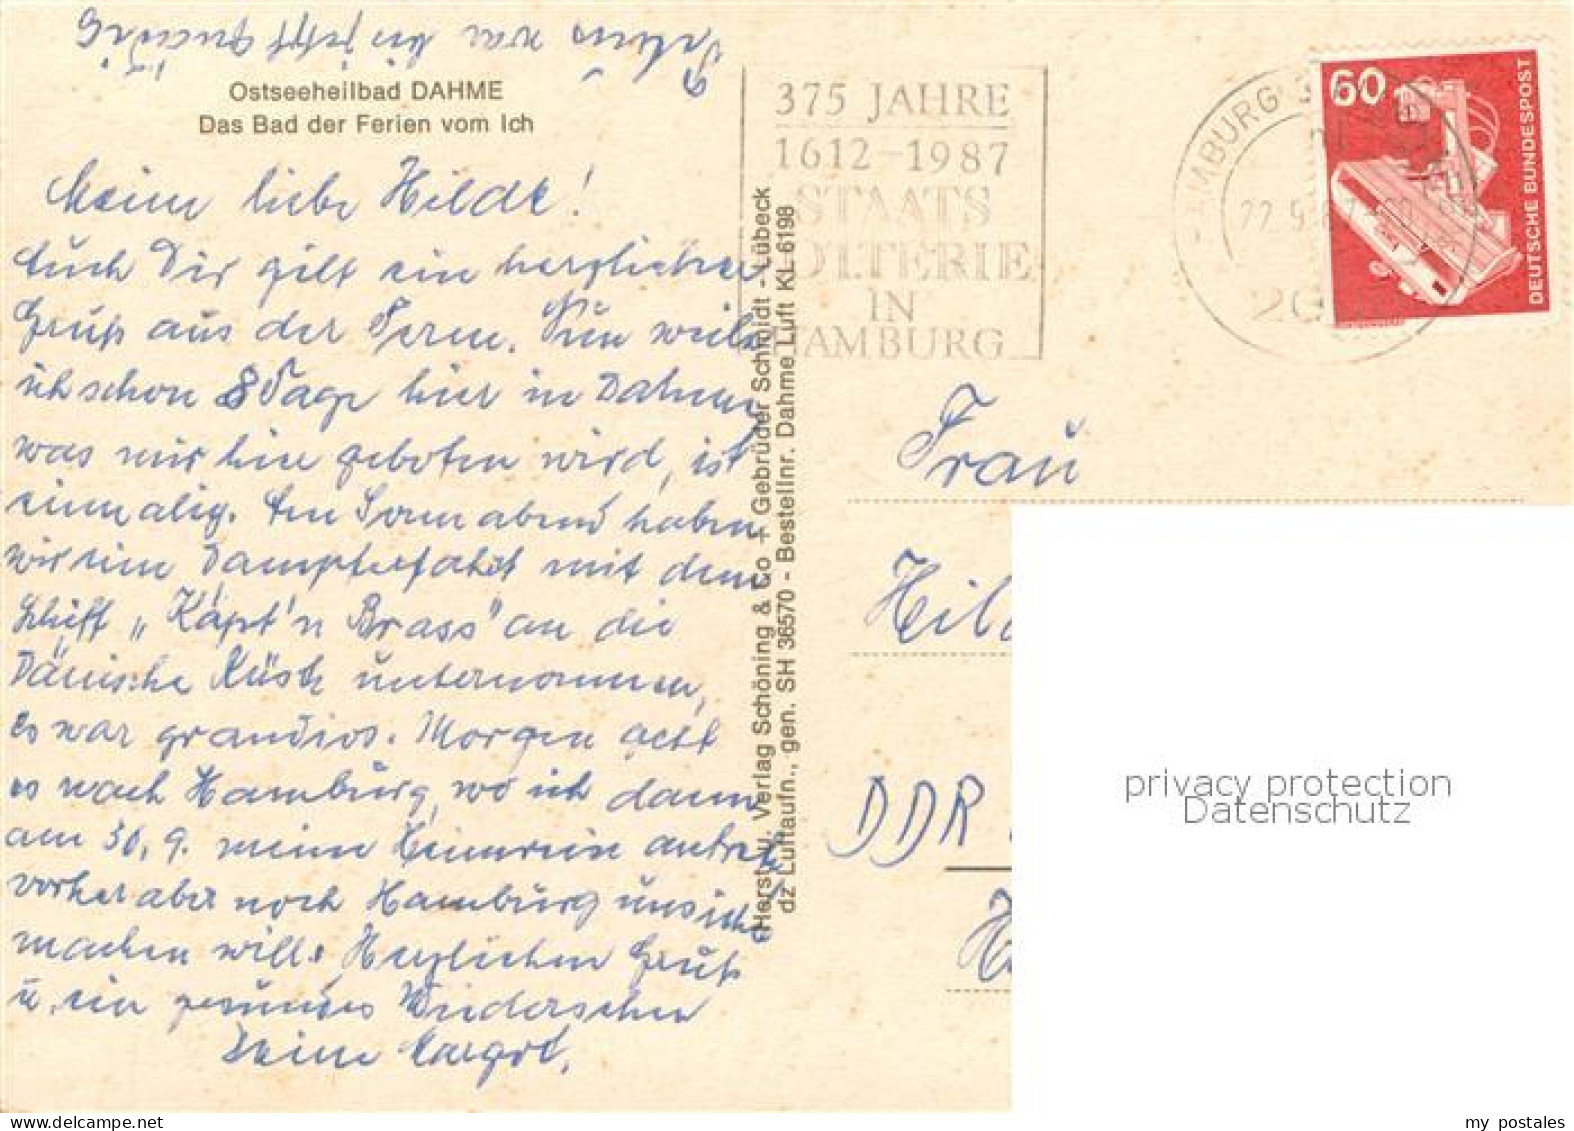 Ostseeheilbad DAHME
Das Bad der Ferien vom Ich
Meine liebe Hilde!
Auch Dir gilt ein herzlicher
Gruß aus der Ferne. Nun weile
ich schon 8 Tage hier in Dahme,
was mir hier geboten wird, ist
einmalig. Am Sonnabend haben
wir eine Dampferfahrt mit dem
Schiff „Käpt'n Brass" an die
Dänische Küste unternommen,
es war grandios. Morgen geht
es nach Hamburg, wo ich dann
am 30. 9. meine Heimreise antrete
vorher aber noch Hamburg unsicher
machen will. Herzlichen Gruß
u. ein gesundes Wiedersehen
Deine Margot.
war bis jetzt
Herst. u. Verlag Schöning & Co + Gebrüder Schmidt - Lübeck
dz Luftaufn., gen. SH 36570 - Bestellnr. Dahme Luft KL 6198
375 JAHRE
1612-1987
STAATS
LOTTERIE
IN
HAMBURG
HAMBURG
22.9.87
60
DEUTSCHE BUNDESPOST
Frau
Hil
DDR
privacy protection
Datenschutz
my postales